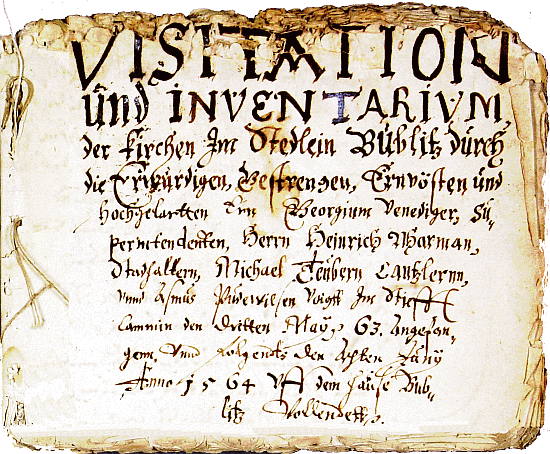 VISITATION
und INVENTARIVM,
der Kirchen Im Stedlein Bublitz durch
die Erwürdigen, Gestrengen, Ernvösten und
Hochgelartten Ern Georgium Venediger, Su-
perintendenten, Herrn Heinrich Norman,
Stadhaltern, Michael Teubern Cantzlernn,
vnnd Asmus Voigtt Im Stifft
Cammin den Dritten Maÿ 63. Angefan-
genn, Vnnd Folgends den Achten
Anno 1564 Vff dem Hause Bub-
litz Vollendett.